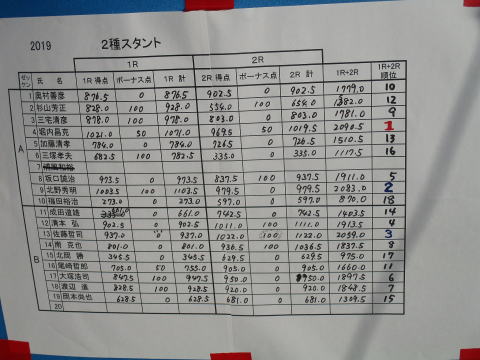 2019 2種スタント
1R 2R
ゼッケン 氏 名 1R 得点 ボーナス点 1R 計 2R 得点 ボーナス点 2R 計 1R+2R 1R+2R 順位
A
1 奥村善彦 876.5 0 876.5 902.5 0 902.5 1779.0 10
2 杉山芳正 828.0 100 928.0 554.0 100 654.0 1582.0 12
3 三宅清彦 878.0 100 978.0 803.0 0 803.0 1781.0 9
4 堀内昌克 1021.0 50 1071.0 969.5 50 1019.5 2090.5 1
5 加藤清孝 784.0 0 784.0 726.5 0 726.5 1510.5 13
6 三塚孝夫 682.5 100 782.5 335.0 0 335.0 1117.5 16
7
8 坂口誠治 973.5 0 973.5 837.5 100 937.5 1911.0 5
9 北野秀明 1003.5 100 1103.5 979.5 0 979.5 2083.0 2
10 福田裕治 273.0 0 273.0 597.0 0 597.0 870.0 18
B
11 成田道雄 661.0 0 661.0 742.5 0 742.5 1403.5 14
12 清本 弘 902.5 0 902.5 1011.0 100 1111.0 1913.5 4
13 佐藤哲司 937.0 0 937.0 1022.0 100 1122.0 2059.0 3
14 南 克也 801.0 0 801.0 936.5 100 1036.5 1837.5 8
15 北岡 勝 345.5 0 345.5 629.5 0 629.5 975.0 17
16 尾崎哲郎 705.0 50 755.0 905.0 0 905.0 1660.0 11
17 大塚浩司 847.5 100 947.5 950.0 0 950.0 1897.5 6
18 渡辺 進 828.5 100 928.5 920.0 0 920.0 1848.5 7
19 岡本尚也 628.5 0 628.5 681.0 0 681.0 1309.5 15
20